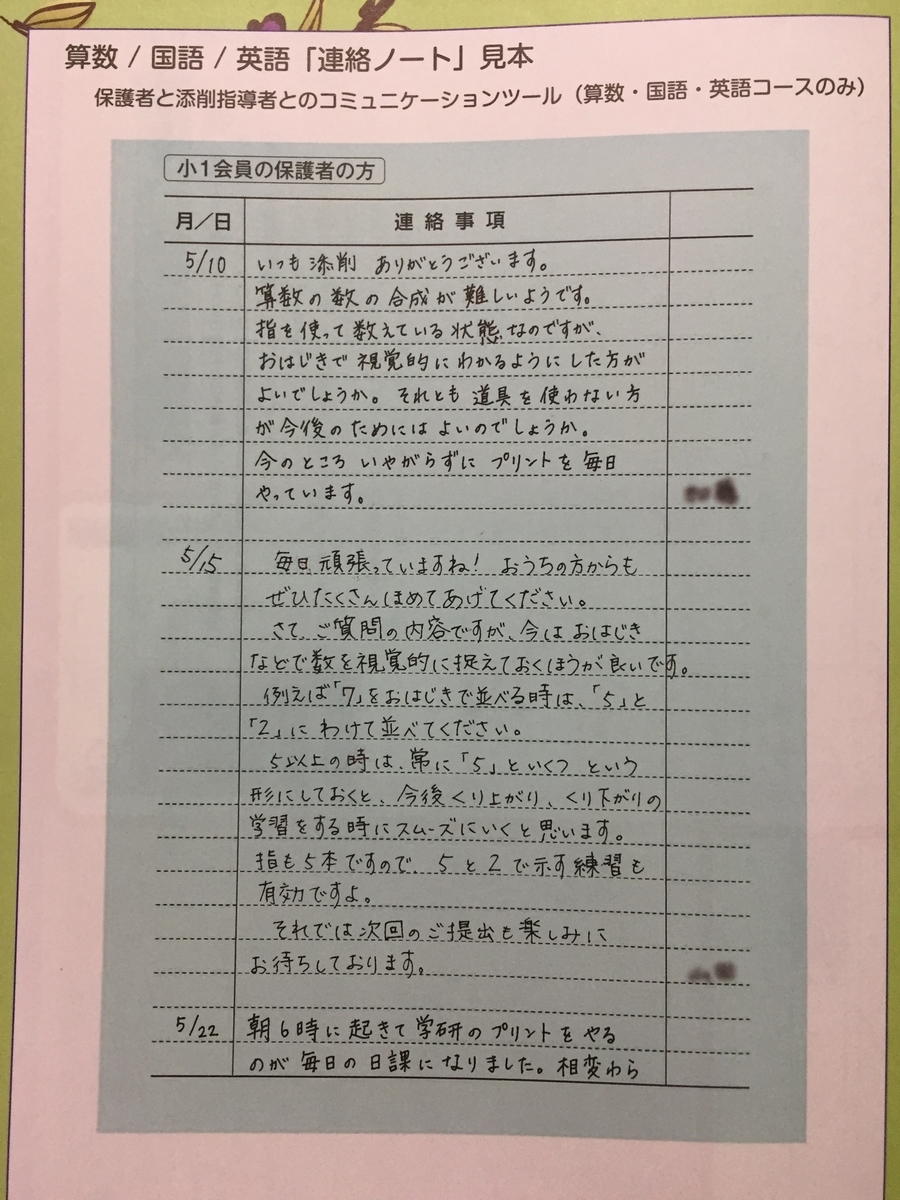 算数 / 国語 / 英語「連絡ノート」見本
保護者と添削指導者とのコミュニケーションツール（算数・国語・英語コースのみ）
小1会員の保護者の方
月／日 連絡事項
5/10 いつも添削 ありがとうございます。
算数の数の合成が難しいようです。
指を使って数えている状態なのですが、
おはじきで視覚的にわかるようにした方が
よいでしょうか。それとも道具を使わない方
が今後のためにはよいのでしょうか。
今のところ いやがらずに プリントを毎日
やっています。
5/15 毎日頑張っていますね！ おうちの方からも
ぜひたくさんほめてあげてください。
さて、ご質問の内容ですが、今はおはじき
などで数を視覚的に捉えておくほうが良いです。
例えば「7」をおはじきで並べる時は、「5」と
「2」にわけて並べてください。
5以上の時は、常に「5」といくつ という
形にしておくと、今後くり上がり、くり下がりの
学習をする時にスムーズにいくと思います。
指も5本ですので、5と2で示す練習も
有効ですよ。
それでは次回のご提出も楽しみに
お待ちしております。
5/22 朝6時に起きて学研のプリントをやる
のが毎日の日課になりました。相変わら